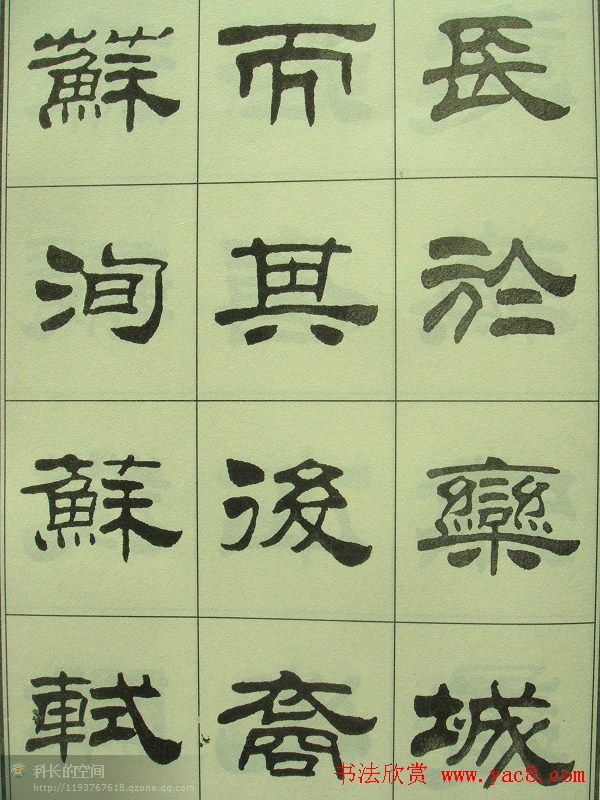 長於欒城
而其後裔
蘇洵蘇軾
科长的空间
http://1193767618.qzone.qq.com
书法欣赏 www.yac8.com